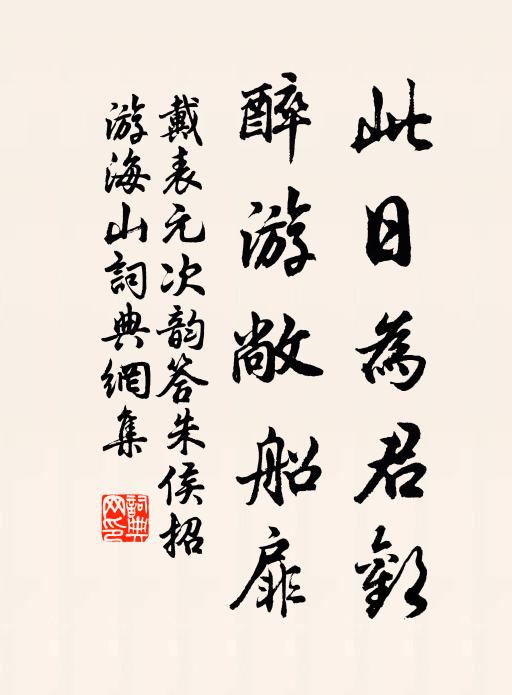 此日為君歡
醉游敞船扉
戴表元次韵答朱侯招
游海山詞典網集
詞典网印